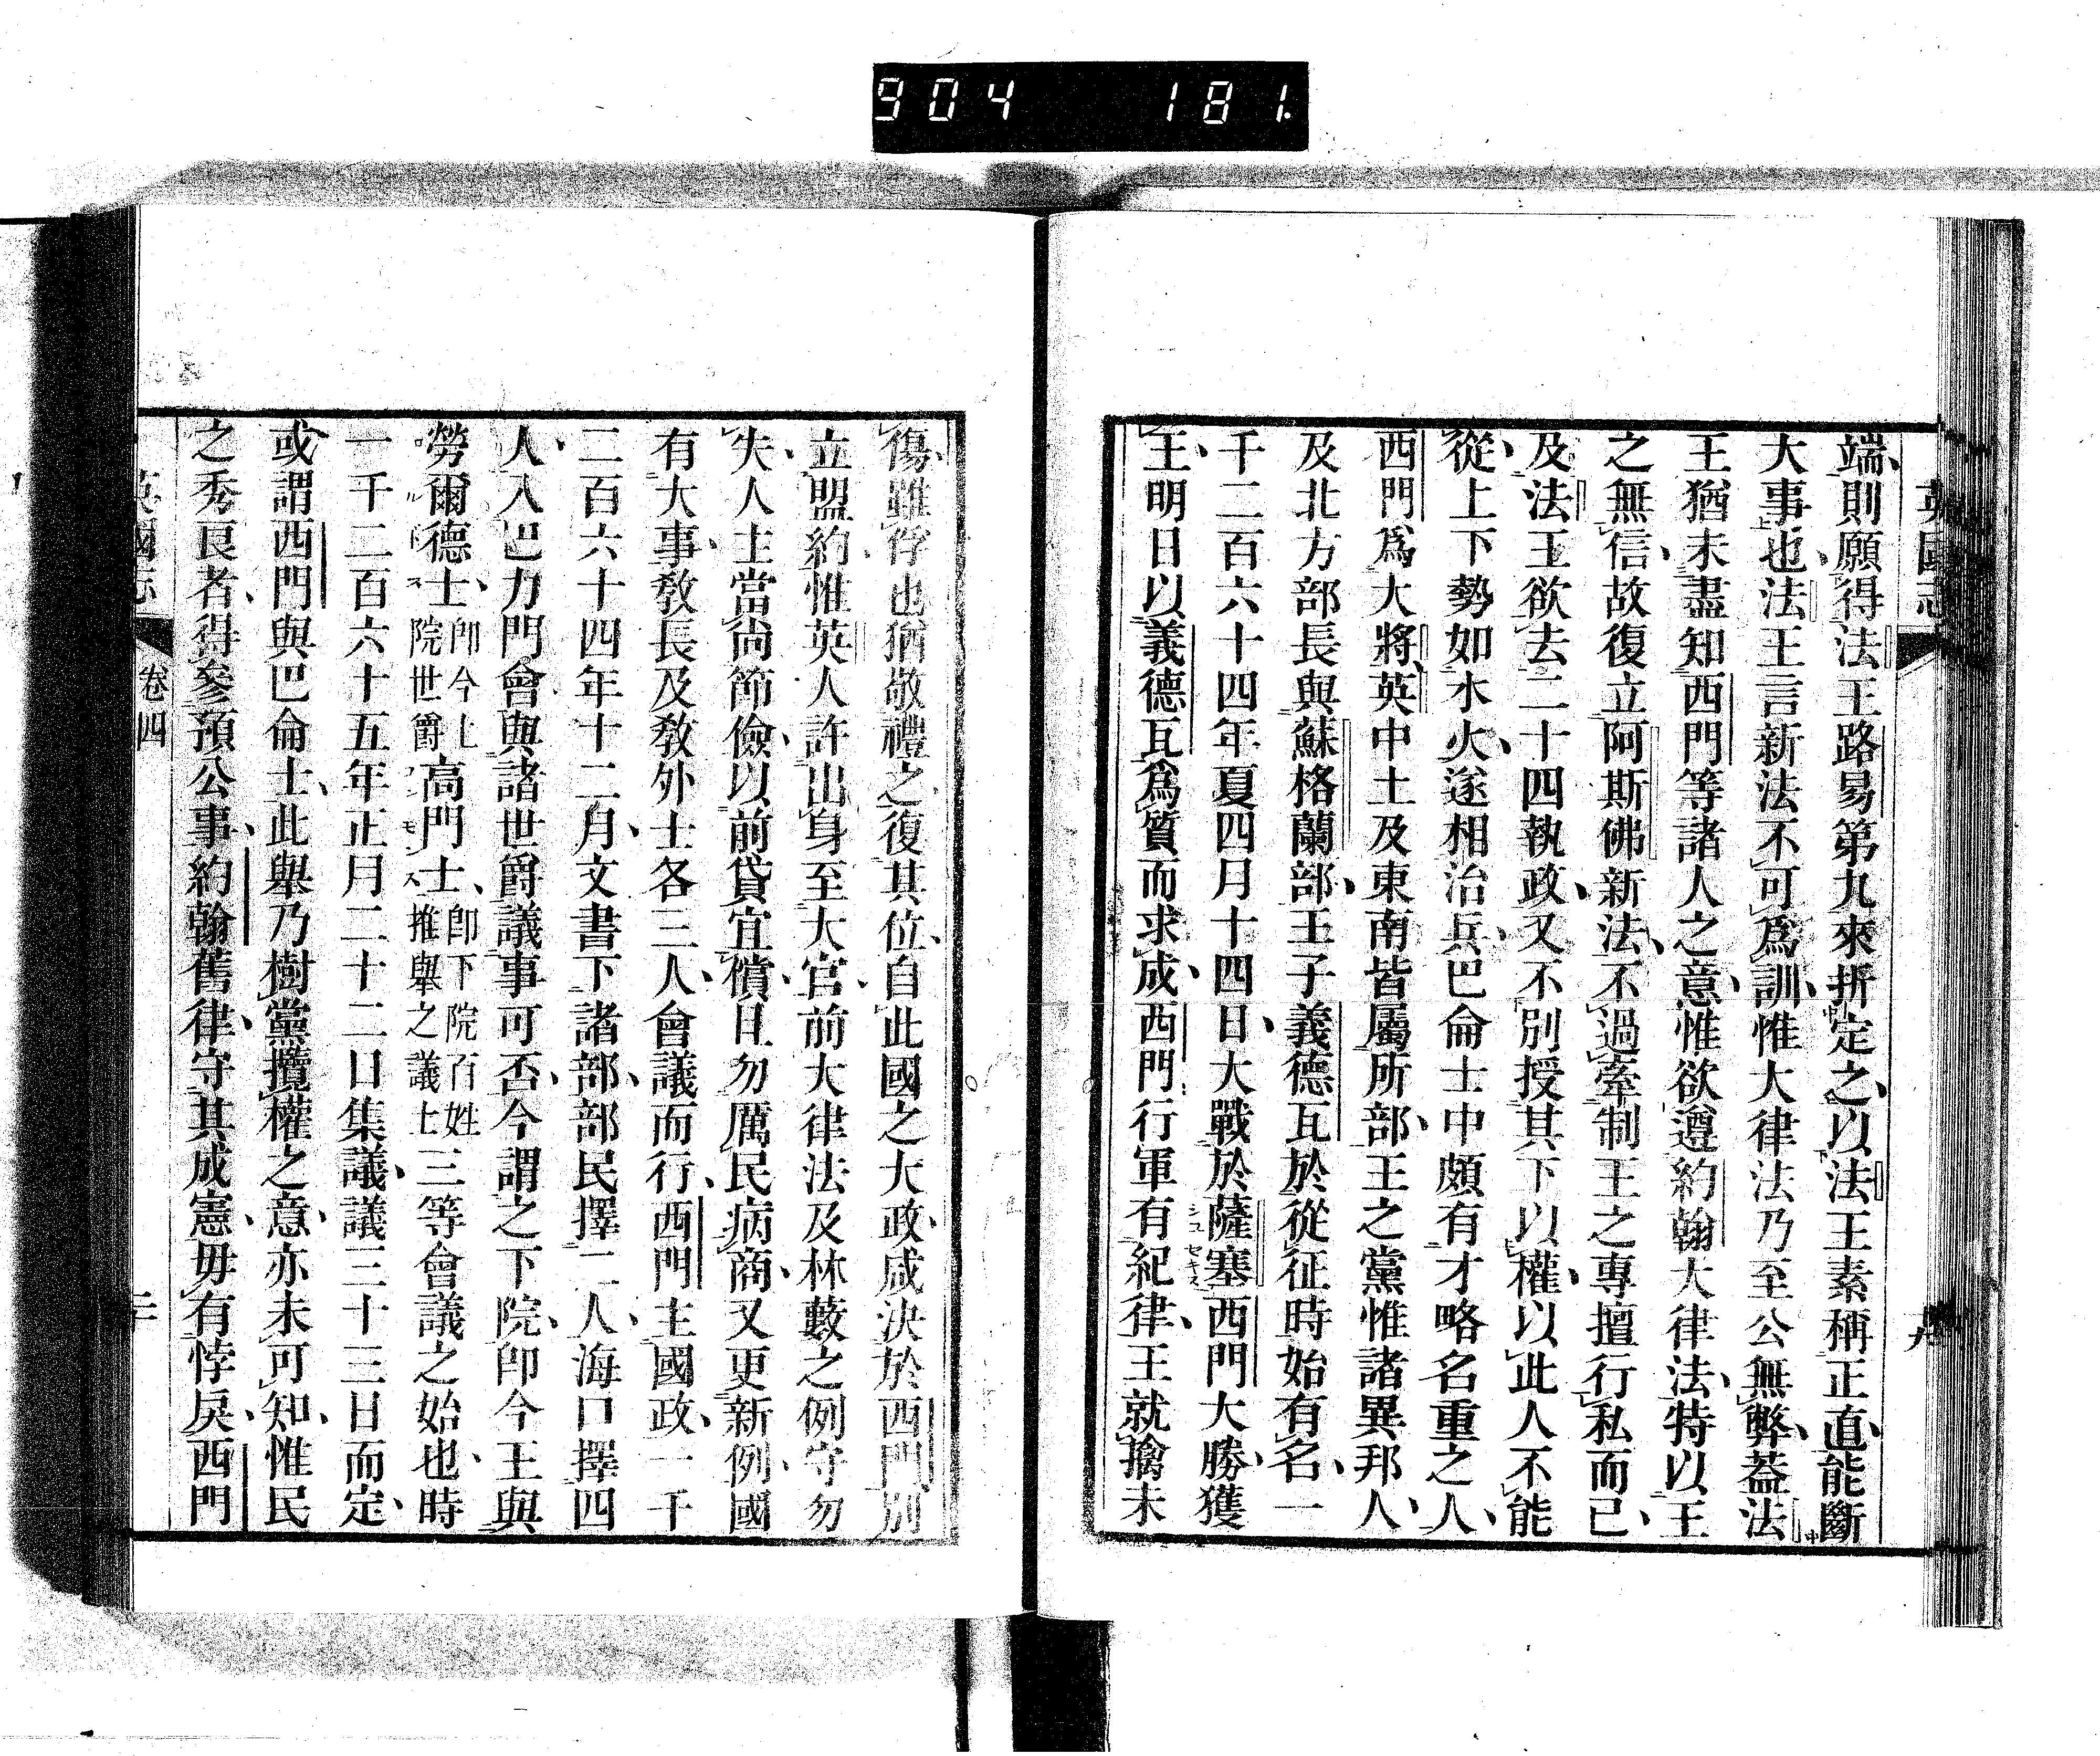 904 181.
英國志
端、則願得法王路易第九來拆定之、以法王素稱正直、能斷
大事也、法王言新法不可爲訓、惟大律法乃至公無弊、葢法
王猶未盡知西門等諸人之意、惟欲遵約翰大律法、特以王
之無信、故復立阿斯佛新法、不過牽制王之專擅行私而已、
及法王欲去二十四執政、又不別授其下以權、以此人不能
從、上下勢如水火、遂相治兵、巴侖士中頗有才略名重之人、
西門爲大將、英中土及東南皆屬所部、王之黨惟諸異邦人、
及北方部長與蘇格蘭部、王子義德瓦於從征時始有名、一
千二百六十四年夏四月十四日、大戰於薩塞西門大勝、獲
シユセキス
王、明日以義德瓦爲質而求成、西門行軍有紀律、王就擒未
傷、雖俘也猶敬禮之、復其位、自此國之大政、咸決於西門、別
立盟約、惟英人許出身至大官、前大律法及林藪之例守勿
失、人主當尚節儉、以前貸宜償、且勿厲民病商、又更新例、國
有大事、敎長及敎外士各三人、會議而行、西門主國政、一千
二百六十四年十二月、文書下諸部、部民擇二人、海口擇四
人、入巴力門會、與諸世爵議事可否、今謂之下院、卽今王與
勞爾德士、卽今上院世爵高門士、卽下院百姓推舉之議士三等會議之始也、時
一千二百六十五年正月二十二日集議、議三十三日而定、
或謂西門與巴侖士、此舉乃樹黨攬權之意、亦未可知、惟民
之秀良者、得參預公事、約翰舊律、守其成憲、毋有悖戾、西門
英國志 卷四